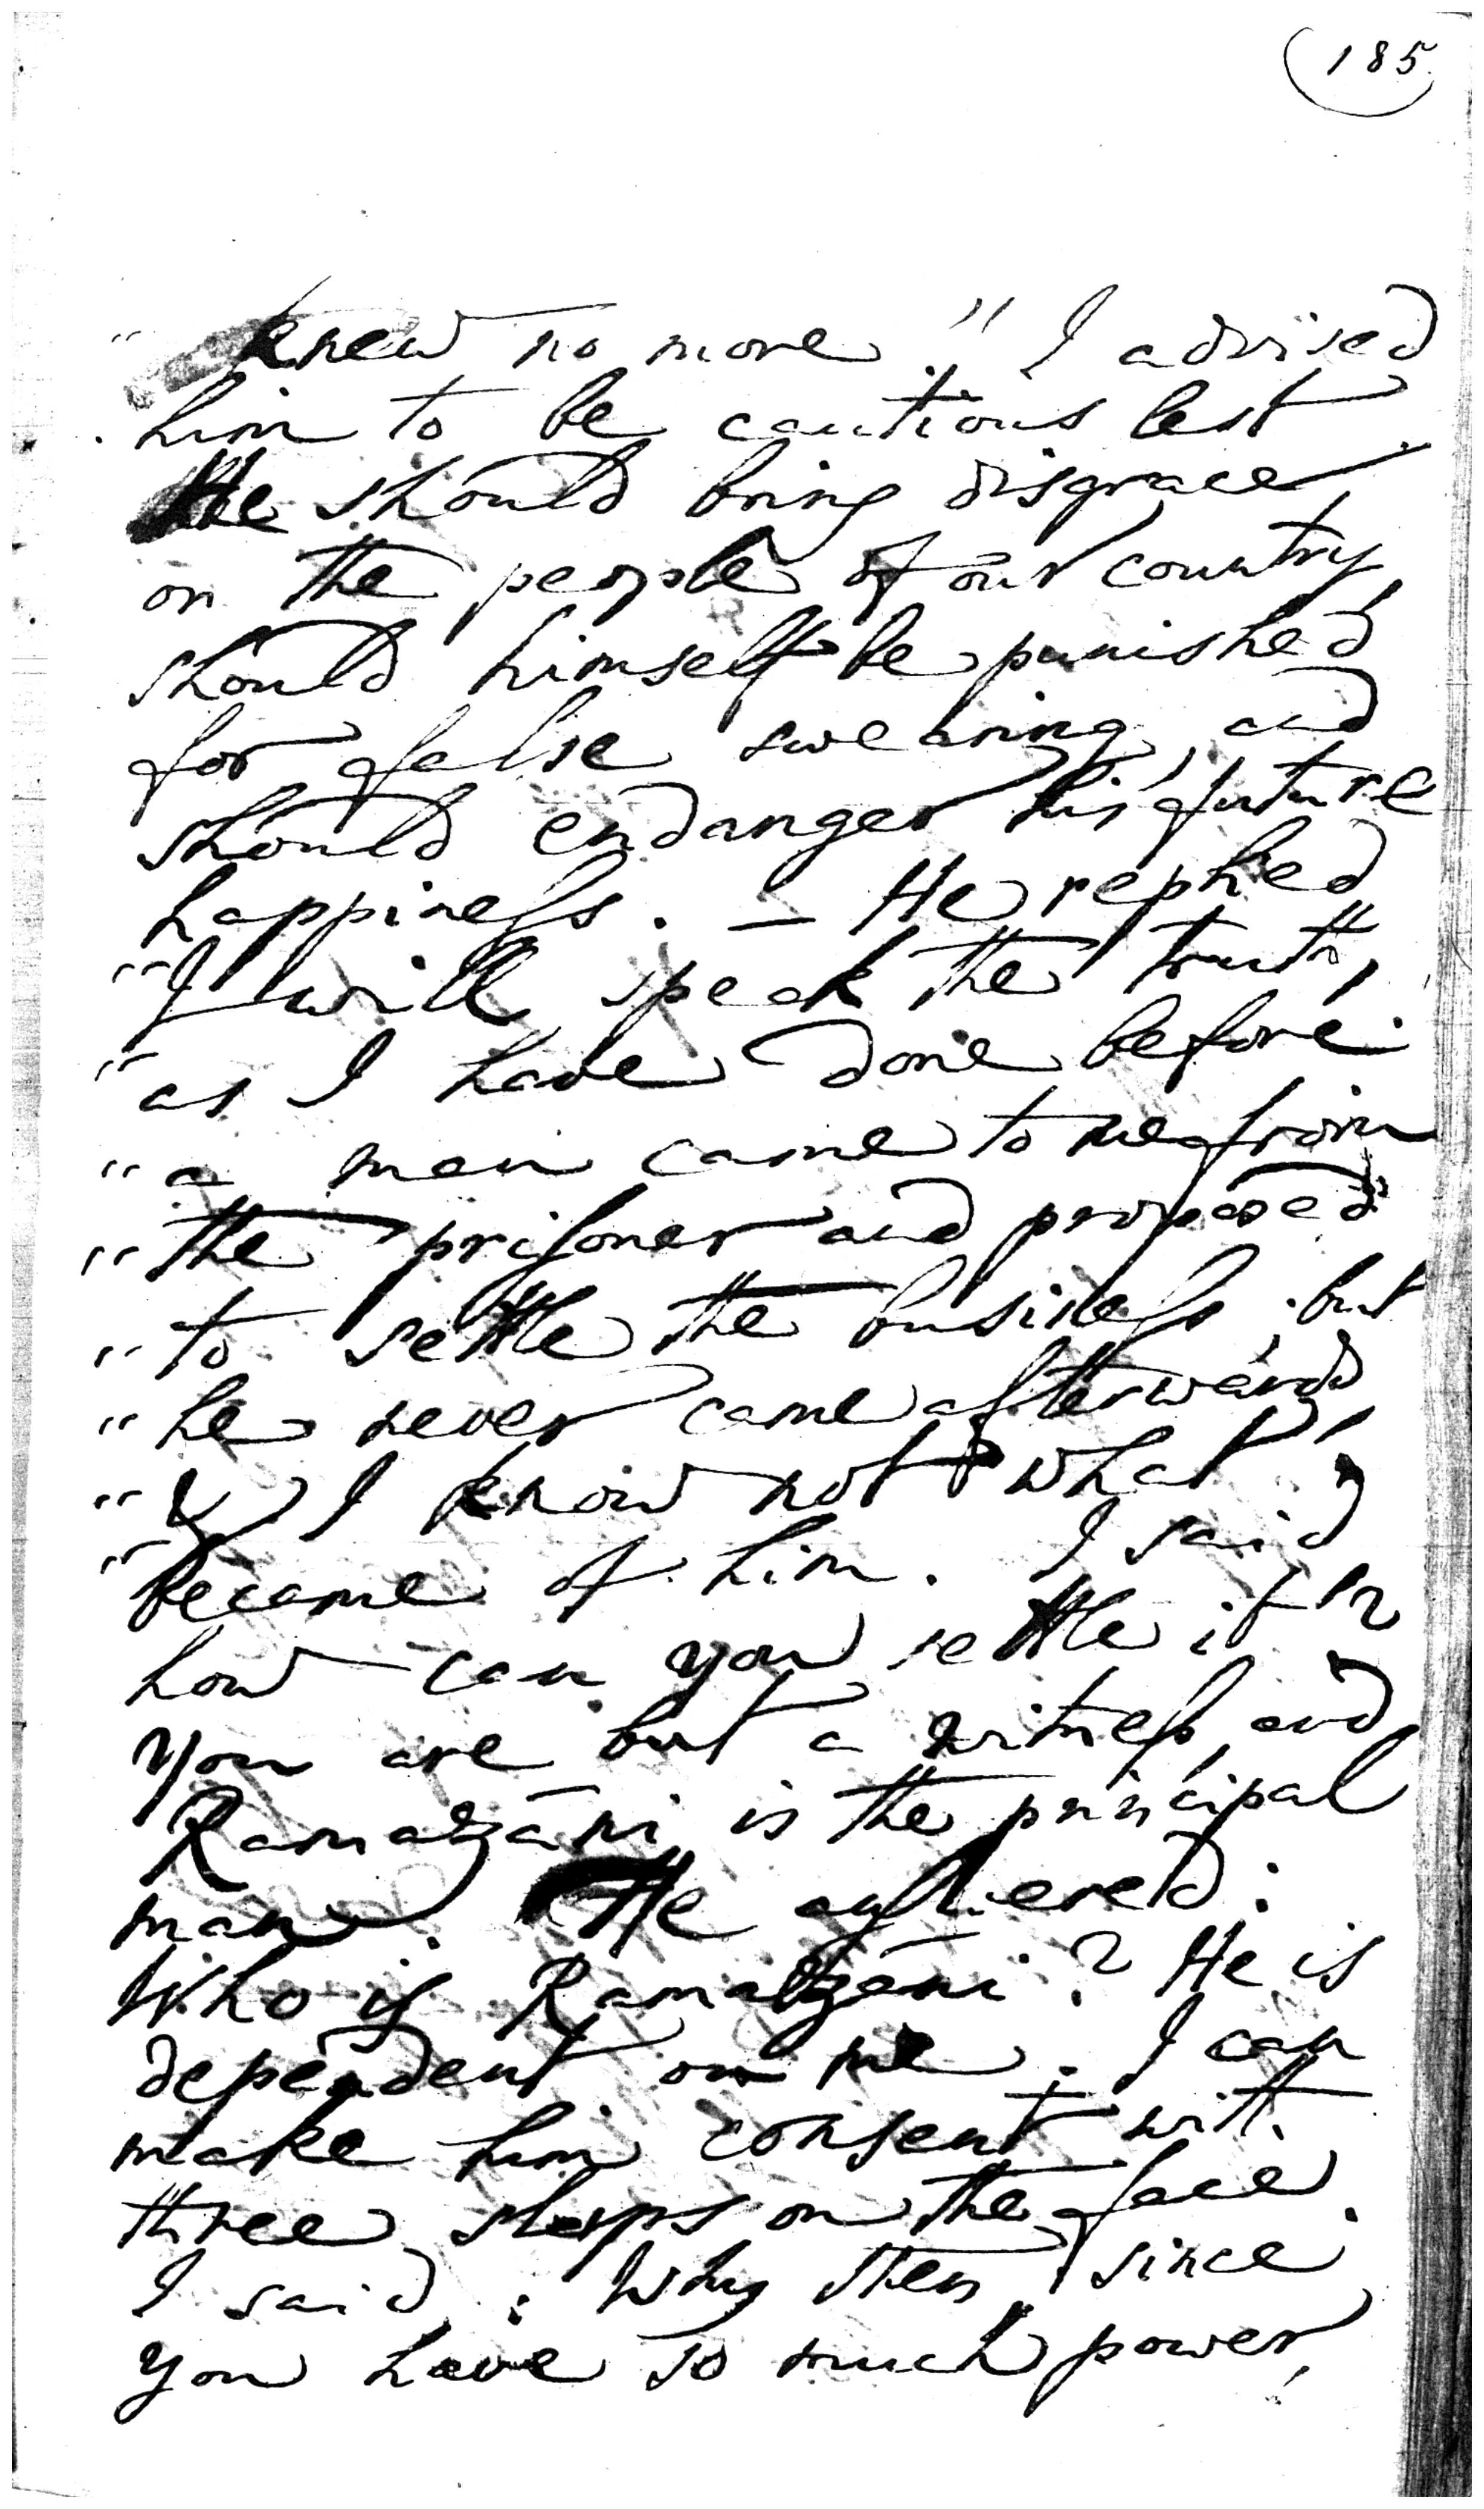 185
" knew no more." I advised
him to be cautious lest
He should bring disgrace
on the people of our country,
should himself be punished
for false swearing, and
should endanger his future
happiness. — He replied
"I will speak the truth,
"as I have done before.
"a man came to me from
"the prisoner and proposed
"to settle the business, but
"he never came afterwards,
"& I know not what
"became of him. I said
how can you settle it?
You are but a witness, and
Ramazāni is the principal
man. He answered:
Who is Ramazāni? He is
dependent on me. I can
make him consent with
three slaps on the face.
I said: Why then, since
you have so much power,